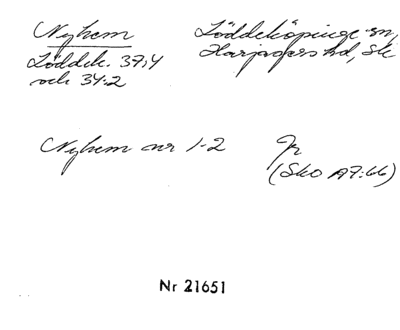 Nyhem
Löddeköpinge sn,
Löddek. 37:4
Harjagers hd, Sk
och 34:2
Nyhem nr 1-2
Jr
(Sko A7:66)
Nr 21651